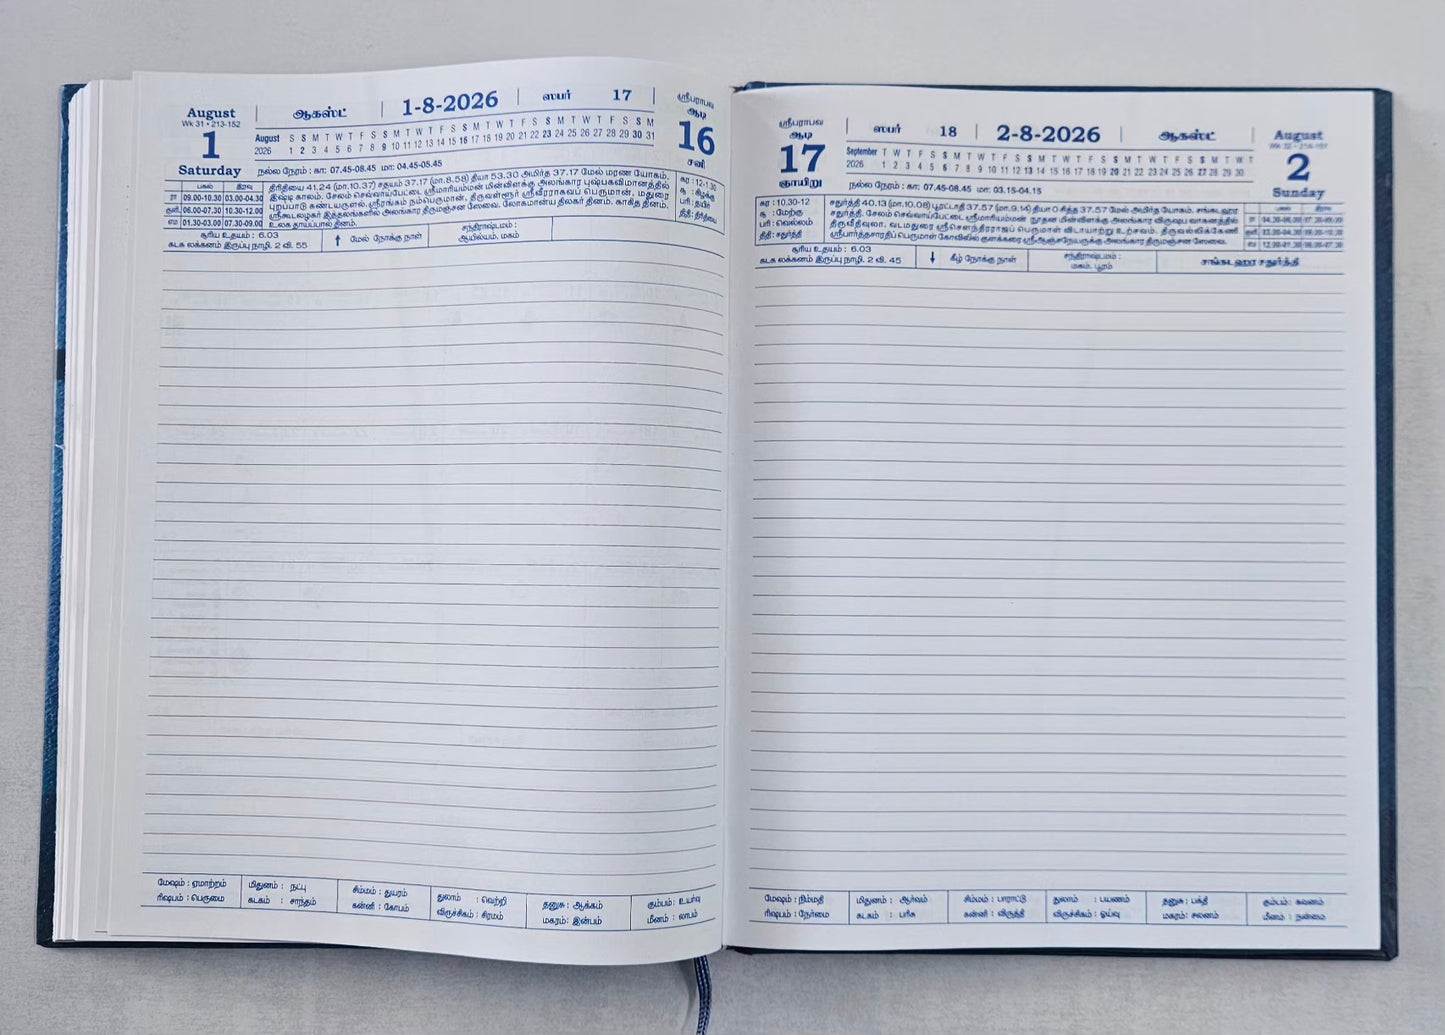 August
Wk 31 • 213-152
1
Saturday
ஆகஸ்ட்
1-8-2026
ஸபர்
17
ஸ்ரீபராபவ
ஆடி
16
சனி
August S S M T W T F S S M T W T F S S M T W T F S S M T W T F S S M
2026 1 2 3 4 5 6 7 8 9 10 11 12 13 14 15 16 17 18 19 20 21 22 23 24 25 26 27 28 29 30 31
நல்ல நேரம் : கா: 07.45-08.45 மா: 04.45-05.45
பகல் இரவு
ரா 09.00-10.30 03.00-04.30
குளி 06.00-07.30 10.30-12.00
எம 01.30-03.00 07.30-09.00
திரிதியை 41.24 (மா.10.37) சதயம் 37.17 (மா.8.58) தியா 53.30 அமிர்த 37.17 மேல் மரண யோகம்.
இஷ்டி காலம். சேலம் செவ்வாய்பேட்டை ஸ்ரீமாரியம்மன் மின்விளக்கு அலங்கார புஷ்பகவிமானத்தில்
புறப்பாடு கண்டயருளல். ஸ்ரீரங்கம் நம்பெருமாள், திருவள்ளூர் ஸ்ரீவீரராகவப் பெருமாள், மதுரை
ஸ்ரீகூடலழகர் இத்தலங்களில் அலங்கார திருமஞ்சன ஸேவை. லோகமான்ய திலகர் தினம். காகித தினம்.
உலக தாய்ப்பால் தினம்.
சூர : 12-1.30
சூ : கிழக்கு
பரி : தயிர்
திதி : திரிதியை
சூரிய உதயம் : 6.03
கடக லக்கனம் இருப்பு நாழி. 2 வி. 55
↑ மேல் நோக்கு நாள்
சந்திராஷ்டமம் :
ஆயில்யம், மகம்
மேஷம் : ஏமாற்றம்
ரிஷபம் : பெருமை
மிதுனம் : நட்பு
கடகம் : சாந்தம்
சிம்மம் : துயரம்
கன்னி : கோபம்
துலாம் : வெற்றி
விருச்சிகம் : சிரமம்
தனுசு : ஆக்கம்
மகரம் : இன்பம்
கும்பம் : உயர்வு
மீனம் : லாபம்
ஸ்ரீபராபவ
ஆடி
17
ஞாயிறு
ஸபர்
18
2-8-2026
ஆகஸ்ட்
August
2
Sunday
September T W T F S S M T W T F S S M T W T F S S M T W T F S S M T W T
2026 1 2 3 4 5 6 7 8 9 10 11 12 13 14 15 16 17 18 19 20 21 22 23 24 25 26 27 28 29 30
நல்ல நேரம் : கா: 07.45-08.45 மா: 03.15-04.15
சூர : 10.30-12
சூ : மேற்கு
பரி : வெல்லம்
திதி : சதுர்த்தி
சதுர்த்தி 40.13 (மா.10.08) பூரட்டாதி 37.57 (மா.9.14) தியா 0 சித்த 37.57 மேல் அமிர்த யோகம். சங்கடஹர
சதுர்த்தி. சேலம் செவ்வாய்பேட்டை ஸ்ரீமாரியம்மன் நூதன மின்விளக்கு அலங்கார விருஷப வாகனத்தில்
திருவீதிவுலா. வடமதுரை ஸ்ரீசௌந்திரராஜப் பெருமாள் விடாயாற்று உற்சவம். திருவல்லிக்கேணி
ஸ்ரீபார்த்தசாரதிப் பெருமாள் கோவிலில் குளக்கரை ஸ்ரீஆஞ்சநேயருக்கு அலங்கார திருமஞ்சன ஸேவை.
பகல் இரவு
சூரிய உதயம் : 6.03
கடக லக்கனம் இருப்பு நாழி. 2 வி. 45
↓ கீழ் நோக்கு நாள்
சந்திராஷ்டமம் :
மகம், பூரம்
சங்கடஹர சதுர்த்தி
மேஷம் : நிம்மதி
ரிஷபம் : நேர்மை
மிதுனம் : ஆர்வம்
கடகம் : பரிசு
சிம்மம் : பாராட்டு
கன்னி : விருத்தி
துலாம் : பயணம்
விருச்சிகம் : ஓய்வு
தனுசு : பக்தி
மகரம் : சலனம்
கும்பம் : கவனம்
மீனம் : நன்மை